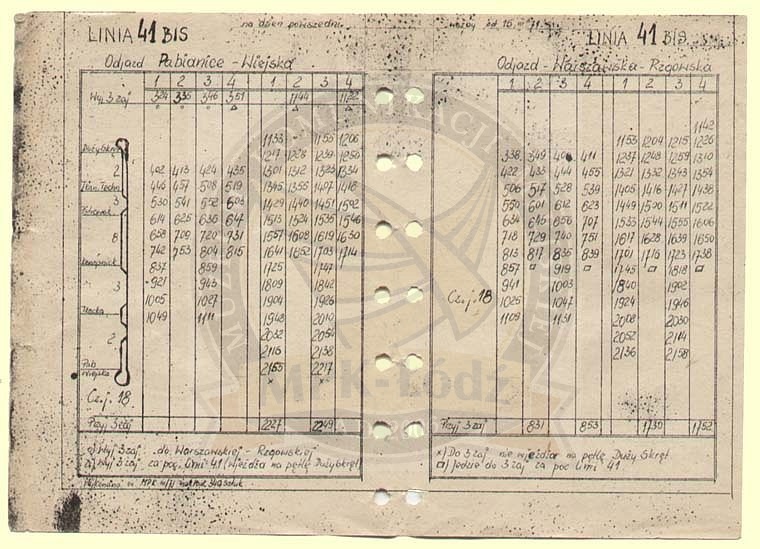 LINIA 41 BIS
na dzień powszedni
ważny od 16
LINIA 41 BIS
Odjazd Pabianice - Wiejska
Odjazd - Warszawska - Rzgowska
1 2 3 4 1 2 3 4
1 2 3 4 1 2 3 4
Wyj 3 zaj 324 335 346 351 1144 1122
1142
1133 1155 1206
1153 1204 1215 1226
Duży Skręt 1217 1228 1239 1250
338 349 411 1237 1248 1259 1310
2 402 413 424 435 1301 1312 1323 1334
422 433 444 455 1321 1332 1343 1354
446 457 508 519 1345 1355 1407 1418
506 517 528 539 1405 1416 1427 1438
3 530 541 552 603 1429 1440 1451 1502
550 601 612 623 1449 1500 1511 1522
614 625 636 647 1513 1524 1535 1546
634 645 656 707 1533 1544 1555 1606
8 658 709 720 731 1557 1608 1619 1630
718 729 740 751 1617 1628 1639 1650
742 753 804 815 1641 1652 1703 1714
813 817 835 839 1701 1715 1723 1738
837 859 1725 1747
857 919 1745 1818
3 921 943 1809 1842
941 1003 1840 1902
1005 1027 1904 1926
Cz.j. 18
1025 1047 1924 1946
1049 1111 1948 2010
1109 1131 2008 2030
2 2032 2054
2052 2114
2116 2138
2136 2158
Pab Wiejska 2155 2217
x x
Cz.j. 18
Przyj 3 zaj 2227 2249
Przyj 3 zaj 831 853 1730 1752
o) Wyj 3 zaj. do Warszawskiej - Rzgowskiej
Wyj 3 zaj za poc. linii 41 (wjeżdża na pętlę Duży Skręt)
x) Do 3 zaj nie wjeżdża na pętlę Duży Skręt
□) Jedzie do 3 zaj za poc linii 41
MPK-Łódź